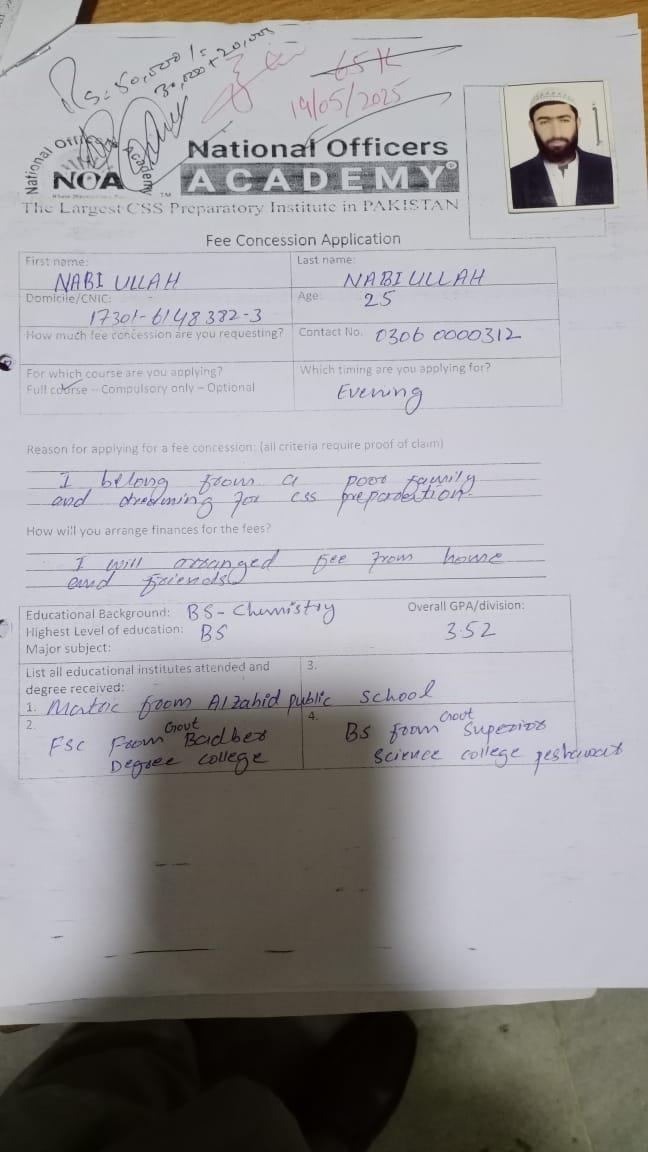 Rs= 50,000/=
30,000+20,000
65K
19/05/2025
National Officers
Academy
NOA
TM
National Officers
ACADEMY
The Largest CSS Preparatory Institute in PAKISTAN
Fee Concession Application
First name: Last name:
NABI ULLAH NABI ULLAH
Domicile/CNIC: Age:
17301-6148382-3 25
How much fee concession are you requesting? Contact No. 0306 0000312
For which course are you applying? Which timing are you applying for?
Full course – Compulsory only – Optional Evening
Reason for applying for a fee concession: (all criteria require proof of claim)
I belong from a poor family
and dreaming for css preperdetion.
How will you arrange finances for the fees?
I will arranged fee from home
and friends
Educational Background: BS-Chemistry Overall GPA/division:
Highest Level of education: BS 3.52
Major subject:
List all educational institutes attended and 3.
degree received:
1. Matric from Alzahid public school
2. 4.
FSC From Govt Badber BS from Govt Superior
Degree college Science college peshawar